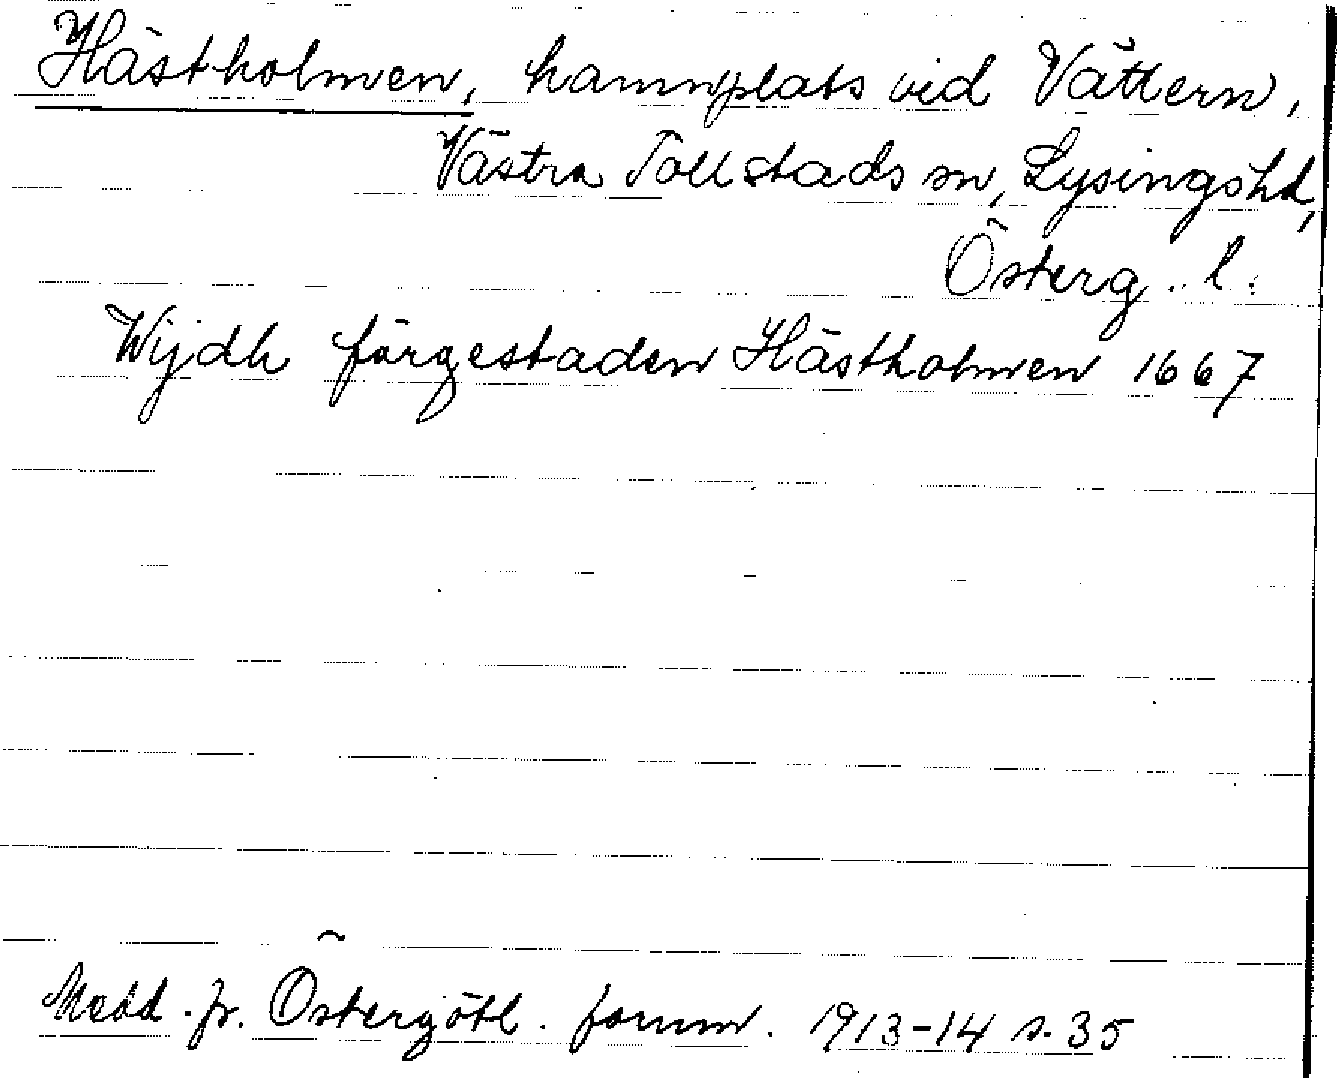 Hästholmen, hamnplats vid Vättern,
Västra Tollstads sn, Lysings hd,
Österg. l.
Wijdh färgestaden Hästholmen 1667
Medd. fr. Östergötl. fornm. 1913-14 s. 35